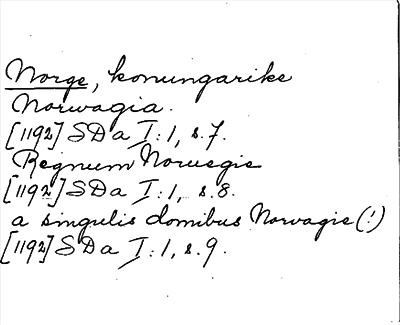 Norge, konungarike
Norwagia.
[1192] SDa I:1, s.7.
Regnum Norwegie
[1192] SDa I:1, s.8.
a singulis domibus Norvagie(!)
[1192] SDa I:1, s.9.